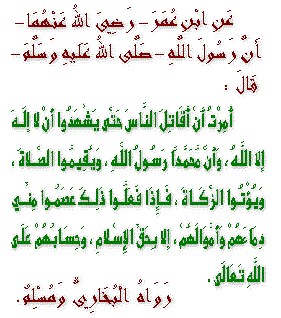 عَنِ ابْنِ عُمَرَ - رَضِيَ اللهُ عَنْهُمَا -
أَنَّ رَسُولَ اللَّهِ - صَلَّى اللهُ عَلَيهِ وَسَلَّمَ -
قَالَ :
أُمِرْتُ أَنْ أُقَاتِلَ النَّاسَ حَتَّى يَشْهَدُوا أَنْ لا إِلَهَ
إِلا اللَّهُ ، وَأَنَّ مُحَمَّداً رَسُولُ اللَّهِ ، وَيُقِيمُوا الصَّلاةَ ،
وَيُؤْتُوا الزَّكَاةَ ، فَإِذَا فَعَلُوا ذَلِكَ عَصَمُوا مِنِّي
دِمَاءَهُمْ وَأَمْوَالَهُمْ ، إِلا بِحَقِّ الإِسْلامِ ، وَحِسَابُهُمْ عَلَى
اللَّهِ تَعَالَى .
رَوَاهُ الْبُخَارِيُّ وَمُسْلِمٌ .